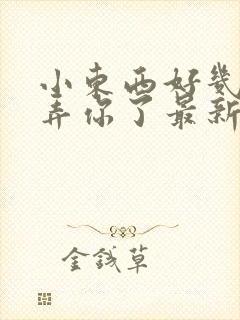 小東西好幾
弄你了最新
金錢草